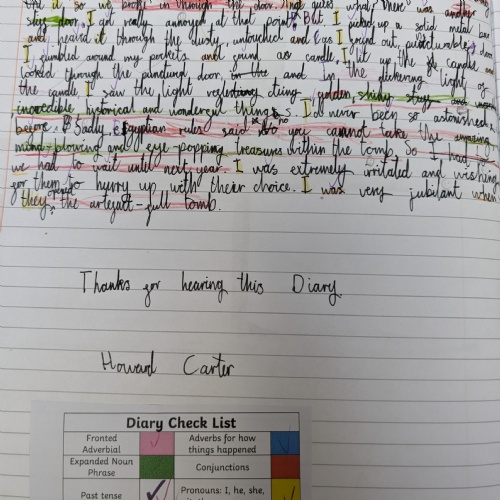 it so we broke in through the door. And guess what? There was another
door. I got really annoyed at that point. But I picked up a solid metal bar
and heaved it through the dusty, untouched and punctureable door
I fumbled around my pockets and found a candle. I lit up the candle
looked through the punctured door, in the and in the flickering light of
the candle, I saw the light reflecting things golden, shiny and
incredible historical and wonderful things. I'd never been so astonished
before. Sadly Egyptian rules said no you cannot take the amazing
mind-blowing and eye-popping treasures within the tomb. So I had
we had to wait until next year. I was extremely irritated and wishing
for them to hurry up with their choice. I was very jubilant when
they opened the artefact-full tomb.
Thanks for hearing this Diary
Howard Carter
Diary Check List
Fronted Adverbial
Adverbs for how things happened
Expanded Noun Phrase
Conjunctions
Past tense
Pronouns: I, he, she,